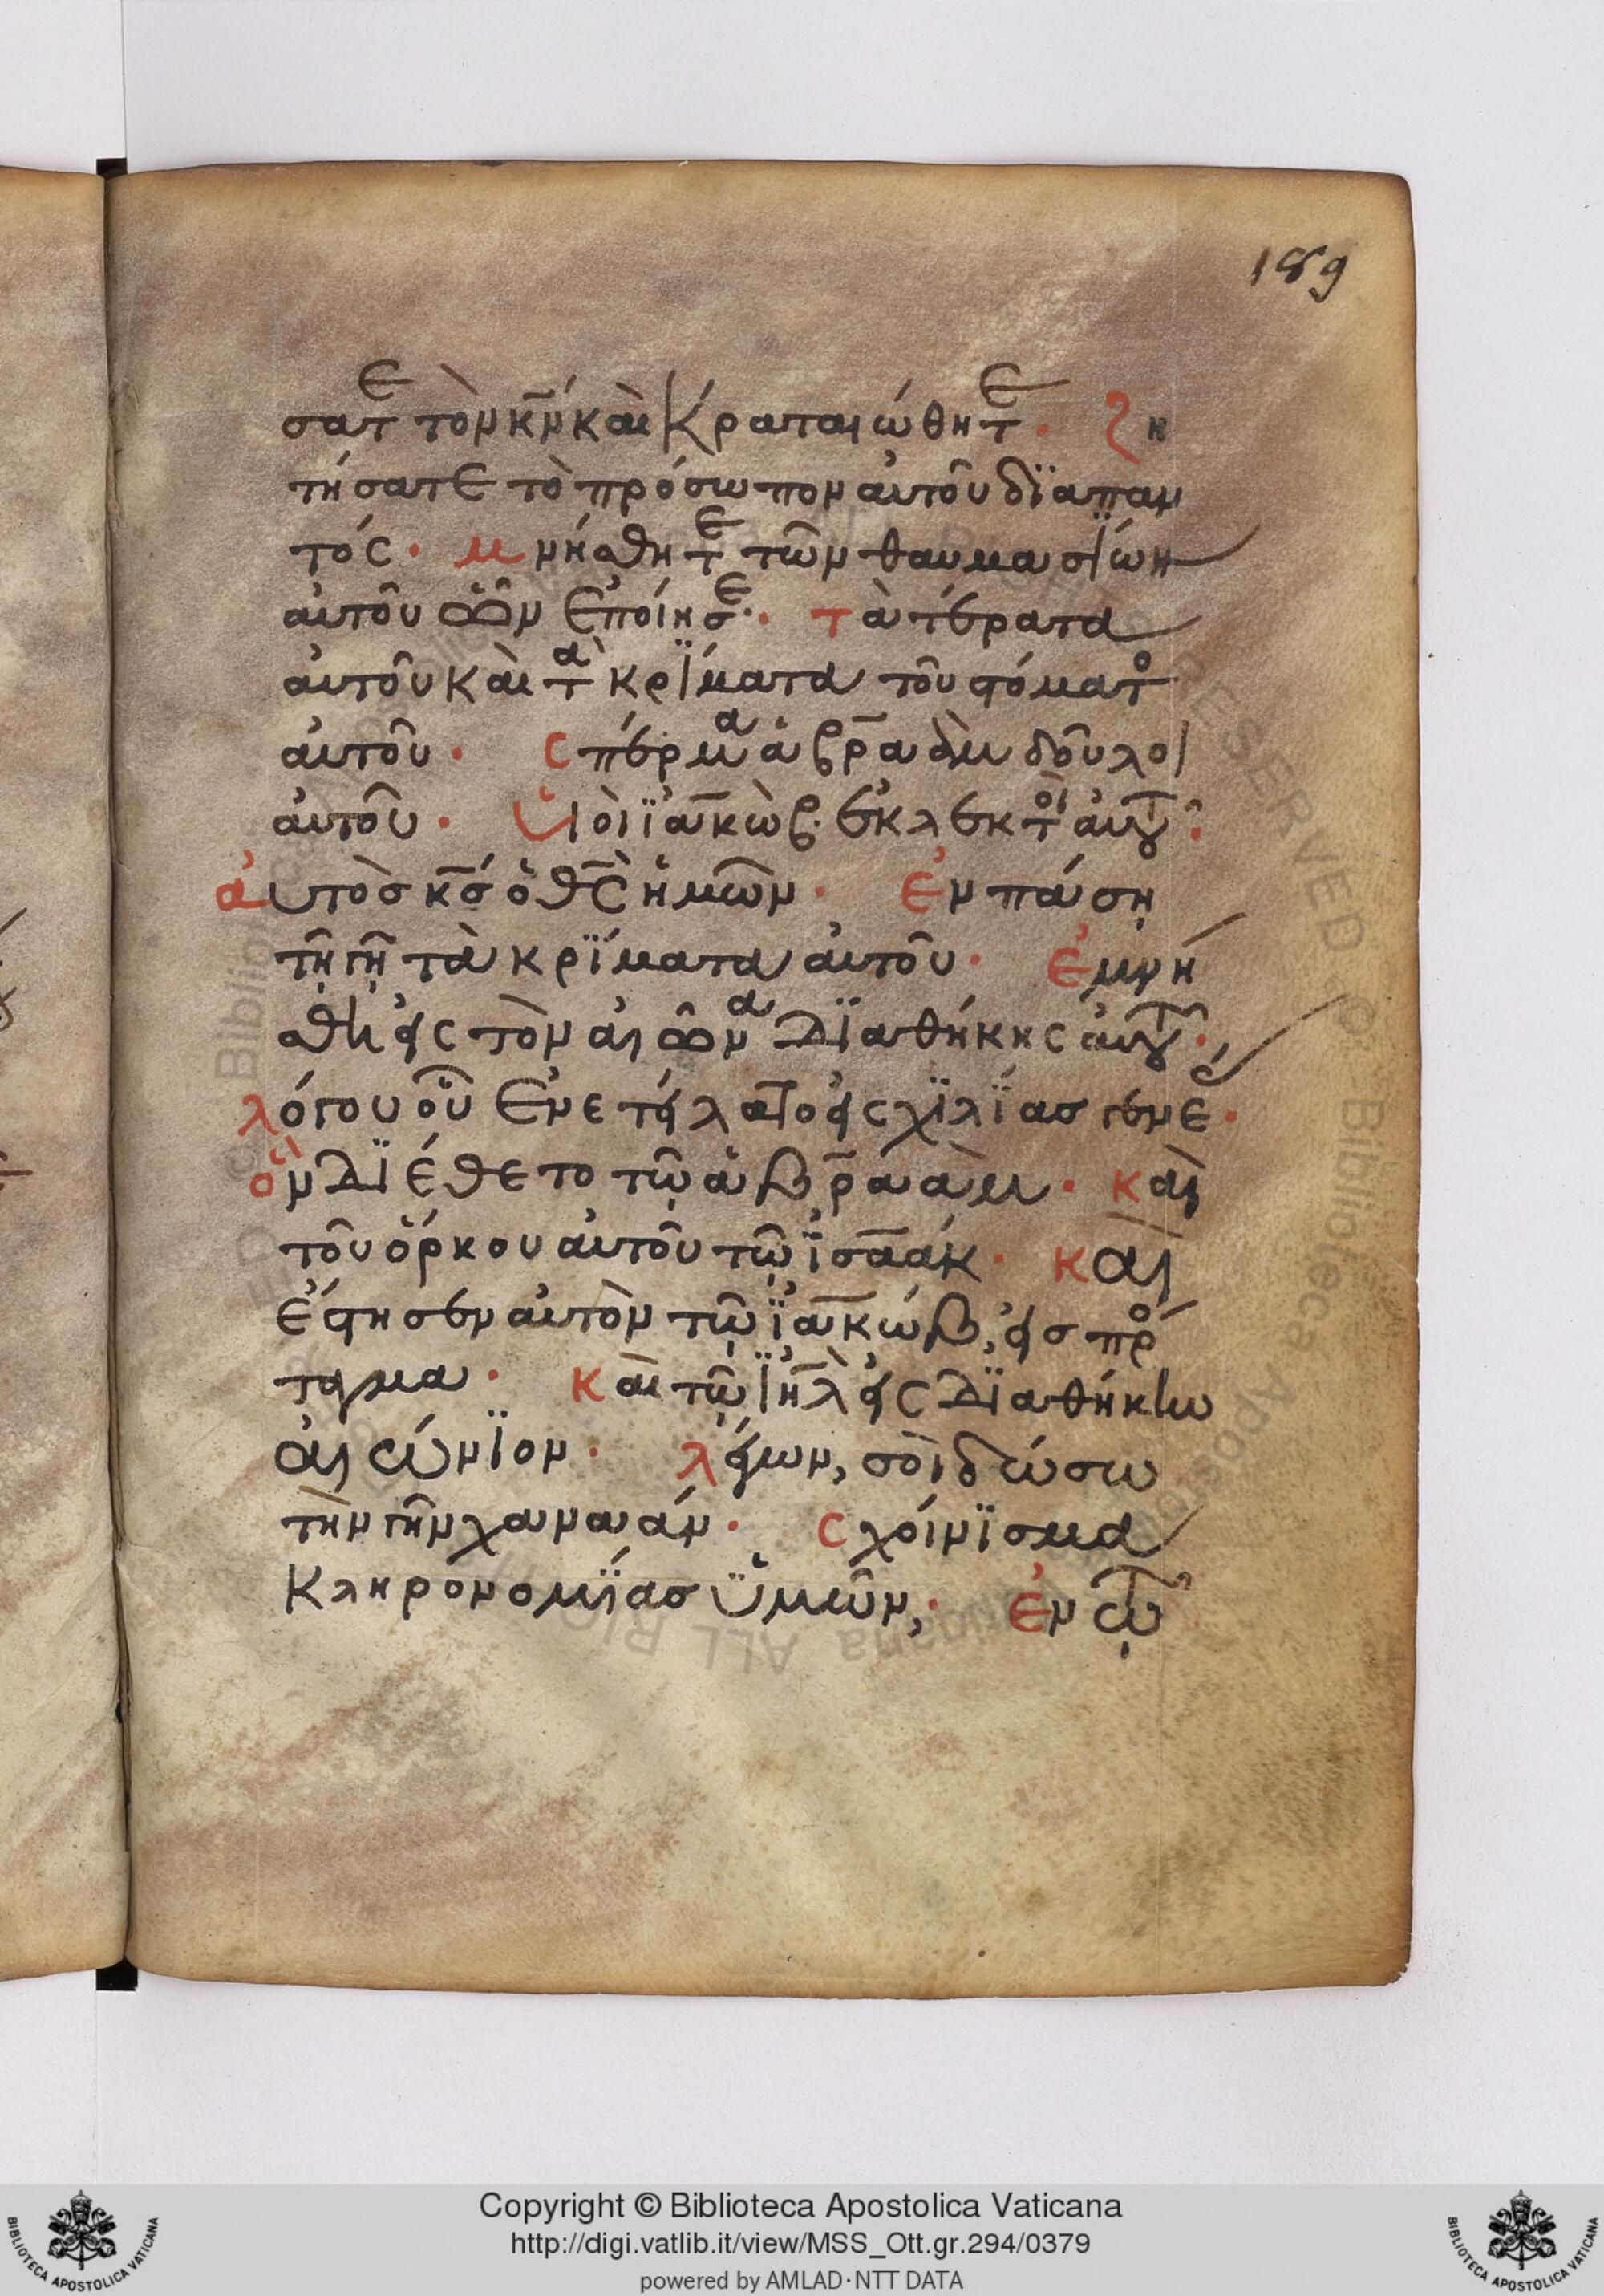 189
σατε τὸν κ̅ν̅ καὶ κραταιώθητε· ζη
τήσατε τὸ πρόσωπον αὐτοῦ διαπαν
τός· μνήσθητε τῶν θαυμασΐων
αὐτοῦ ὧν ἐποίησε· τὰ τέρατα
αὐτοῦ καὶ τὰ κρΐματα τοῦ στόματο
αὐτοῦ· σπέρμα ἁβρ̅αὰμ δοῦλοι
αὐτοῦ· ὑιὸι ϊα̅κὼβ ἐκλεκτοὶ αὐτοῦ·
ἀυτὸσ κ̅σ̅ ὁ θ̅ς̅ ἡμῶν· ἐν πάση
τῆ γῆ τὰ κρΐματα αὐτοῦ· ἐμνή
σθη εἰς τὸν αἰῶνα διαθήκης αὐτοῦ·
λόγου οὗ ἐνετείλατο εἰς χϊλΐασ γενεάς·
ὃν διέθετο τῷ ἁβρ̅αὰμ· καὶ
τοῦ ὅρκου αὐτοῦ τῷ ἰσαάκ· καὶ
ἔστησεν αὐτὸν τῷ ϊα̅κώβ, εἰσ πρό
ταγμα· καὶ τῷ ι̅η̅λ̅ εἰς διαθήκην
αἰώνϊον· λέγων, σοὶ δώσω
τὴν γῆν χανααάν· σχοίνϊσμα
κληρονομΐασ ὑμῶν,· ἐν τῷ
Copyright © Biblioteca Apostolica Vaticana
http://digi.vatlib.it/view/MSS_Ott.gr.294/0379
powered by AMLAD·NTT DATA
BIBLIOTECA APOSTOLICA VATICANA
BIBLIOTECA APOSTOLICA VATICANA